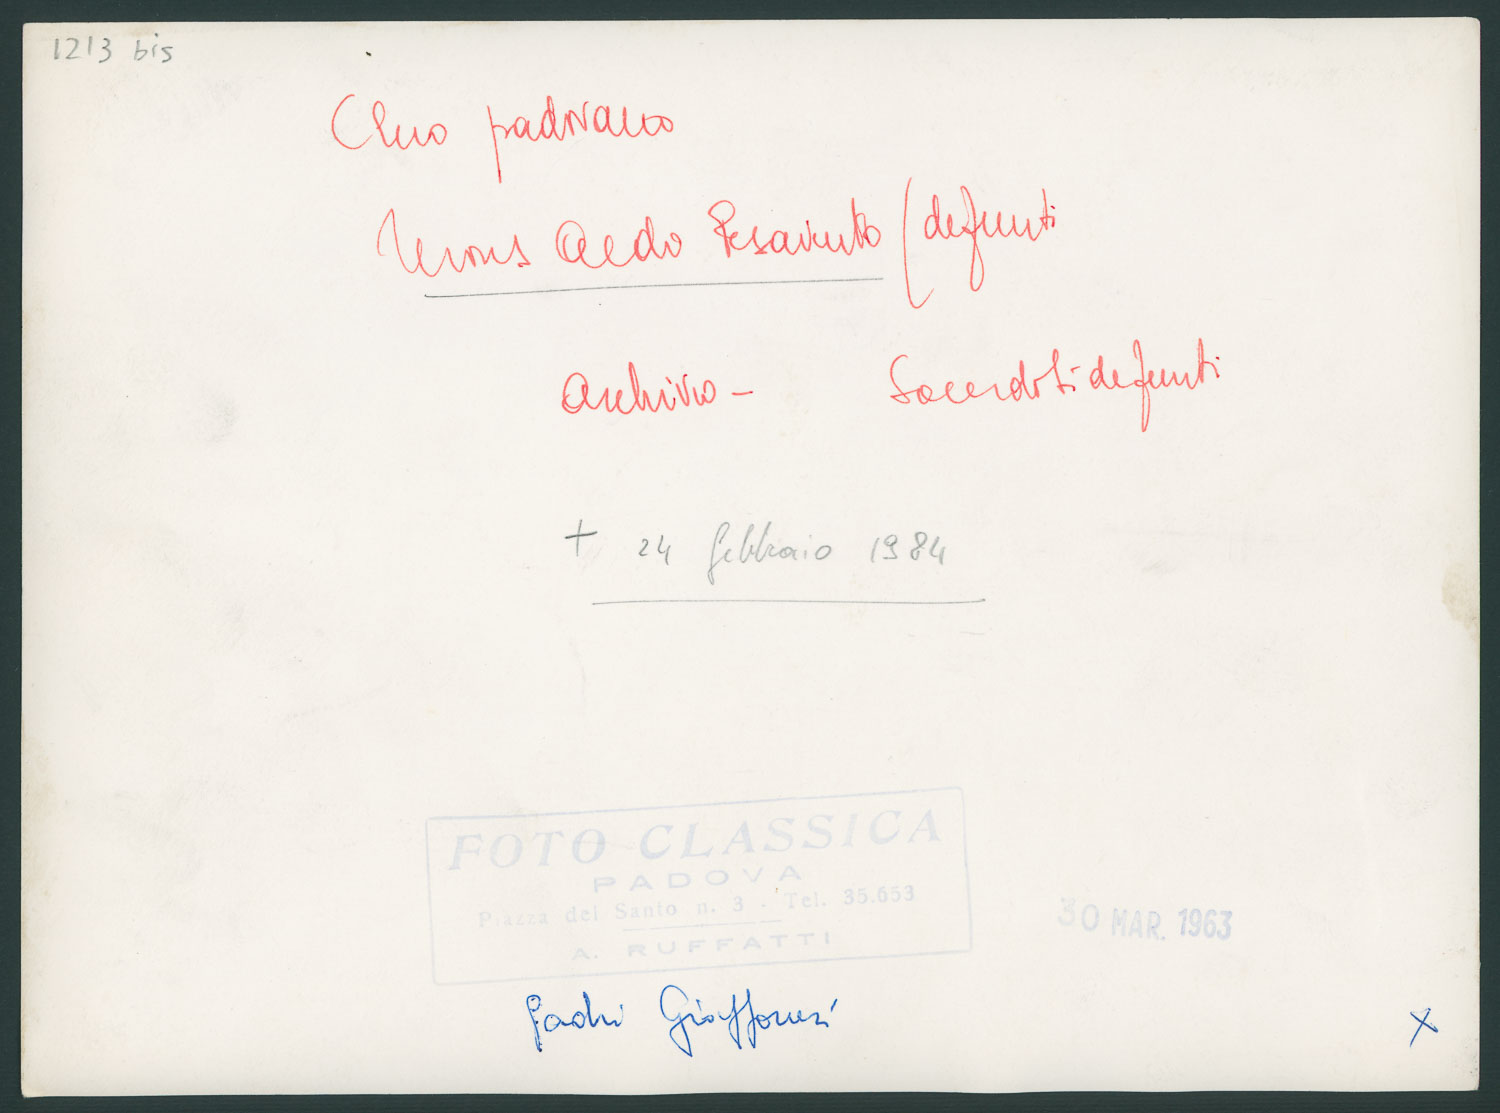 1213 bis
Clero padovano
Mons Aldo Pesavento (defunti
Archivio - Sacerdoti defunti
+ 24 febbraio 1984
FOTO CLASSICA
PADOVA
Piazza del Santo n. 3 - Tel. 35.653
A. RUFFATTI
30 MAR. 1963
Padri Giapponesi
X